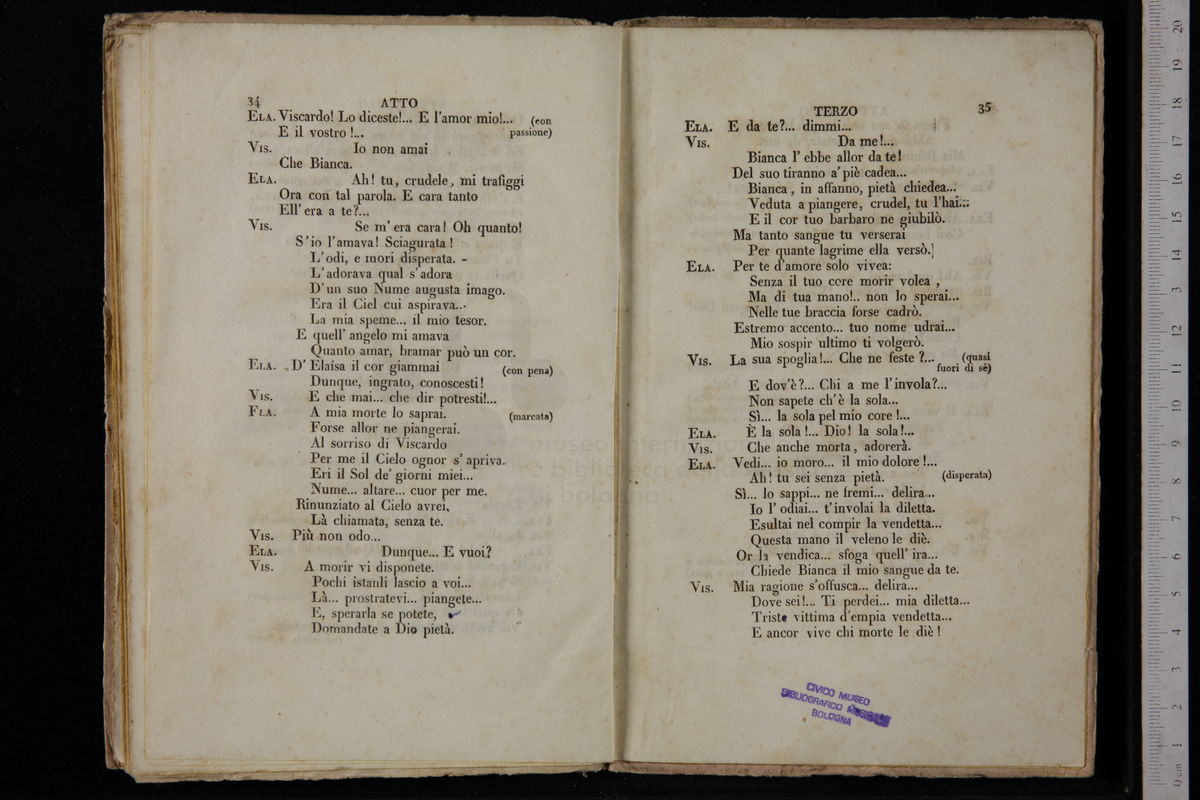 34 ATTO
ELA. Viscardo! Lo diceste!... E l'amor mio!... (con
E il vostro!... passione)
VIS. Io non amai
Che Bianca.
ELA. Ah! tu, crudele, mi trafiggi
Ora con tal parola. E cara tanto
Ell' era a te?...
VIS. Se m' era cara! Oh quanto!
S'io l'amava! Sciagurata!
L'odi, e mori disperata. -
L'adorava qual s'adora
D'un suo Nume augusta imago.
Era il Ciel cui aspirava...
La mia speme... il mio tesor.
E quell' angelo mi amava
Quanto amar, bramar può un cor.
ELA. D' Elaisa il cor giammai (con pena)
Dunque, ingrato, conoscesti!
VIS. E che mai... che dir potresti!...
ELA. A mia morte lo saprai. (marcata)
Forse allor ne piangerai.
Al sorriso di Viscardo
Per me il Cielo ognor s' apriva.
Eri il Sol de' giorni miei...
Nume... altare... cuor per me.
Rinunziato al Cielo avrei,
Là chiamata, senza te.
VIS. Più non odo...
ELA. Dunque... E vuoi?
VIS. A morir vi disponete.
Pochi istanti lascio a voi...
Là... prostratevi... piangete...
E, sperarla se potete,
Domandate a Dio pietà.
TERZO 35
ELA. E da te?... dimmi...
VIS. Da me!...
Bianca l' ebbe allor da te!
Del suo tiranno a' piè cadea...
Bianca, in affanno, pietà chiedea...
Veduta a piangere, crudel, tu l'hai...
E il cor tuo barbaro ne giubilò.
Ma tanto sangue tu verserai
Per quante lagrime ella versò.
ELA. Per te d'amore solo vivea:
Senza il tuo core morir volea,
Ma di tua mano!.. non lo sperai...
Nelle tue braccia forse cadrò.
Estremo accento... tuo nome udrai...
Mio sospir ultimo ti volgerò.
VIS. La sua spoglia!... Che ne feste?... (quasi
fuori di sè)
E dov'è?... Chi a me l'invola?...
Non sapete ch'è la sola...
Sì... la sola pel mio core!...
ELA. È la sola!... Dio! la sola!...
VIS. Che anche morta, adorerà.
ELA. Vedi... io moro... il mio dolore!...
Ah! tu sei senza pietà. (disperata)
Sì... lo sappi... ne fremi... delira...
Io l' odiai... t'involai la diletta.
Esultai nel compir la vendetta...
Questa mano il veleno le diè.
Or la vendica... sfoga quell' ira...
Chiede Bianca il mio sangue da te.
VIS. Mia ragione s'offusca... delira...
Dove sei!... Ti perdei... mia diletta...
Triste vittima d'empia vendetta...
E ancor vive chi morte le diè!
CIVICO MUSEO
BIBLIOGRAFICO MUSICALE
BOLOGNA
museo internazionale
e biblioteca
di bologna
0 cm 1 2 3 4 5 6 7 8 9 10 11 12 13 14 15 16 17 18 19 20